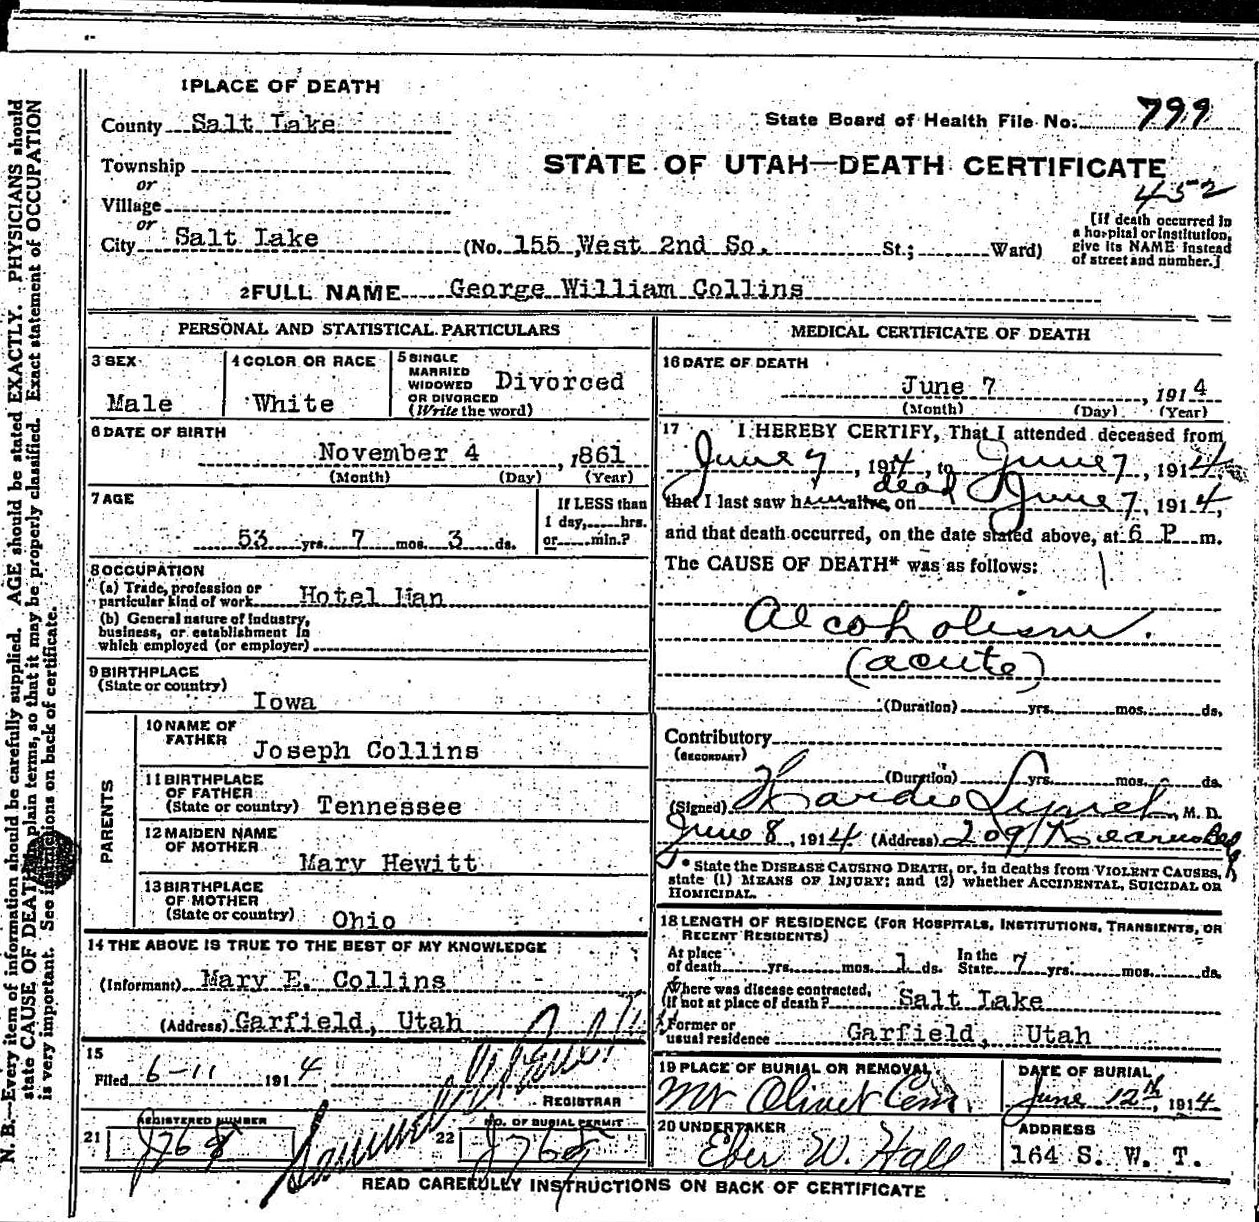 1 PLACE OF DEATH
County Salt Lake
State Board of Health File No. 799
Township
STATE OF UTAH—DEATH CERTIFICATE
or
452
Village
or
City Salt Lake (No. 155 West 2nd So. St.; Ward)
[If death occurred in a hospital or institution, give its NAME instead of street and number.]
2 FULL NAME George William Collins
PERSONAL AND STATISTICAL PARTICULARS
3 SEX
Male
4 COLOR OR RACE
White
5 SINGLE
MARRIED
WIDOWED
OR DIVORCED
(Write the word)
Divorced
6 DATE OF BIRTH
November 4, 1861
(Month) (Day) (Year)
7 AGE
53 yrs. 7 mos. 3 ds.
If LESS than
1 day, hrs.
or min.?
8 OCCUPATION
(a) Trade, profession or
particular kind of work Hotel Man
(b) General nature of industry,
business, or establishment in
which employed (or employer)
9 BIRTHPLACE
(State or country)
Iowa
PARENTS
10 NAME OF
FATHER
Joseph Collins
11 BIRTHPLACE
OF FATHER
(State or country) Tennessee
12 MAIDEN NAME
OF MOTHER
Mary Hewitt
13 BIRTHPLACE
OF MOTHER
(State or country) Ohio
14 THE ABOVE IS TRUE TO THE BEST OF MY KNOWLEDGE
(Informant) Mary E. Collins
(Address) Garfield, Utah
15
Filed 6-11 1914
REGISTRAR
21 REGISTERED NUMBER
J768
22 NO. OF BURIAL PERMIT
J768
MEDICAL CERTIFICATE OF DEATH
16 DATE OF DEATH
June 7, 1914
(Month) (Day) (Year)
17 I HEREBY CERTIFY, That I attended deceased from
June 7, 1914, to June 7, 1914
dead
that I last saw him alive, on June 7, 1914,
and that death occurred, on the date stated above, at 6 P m.
The CAUSE OF DEATH* was as follows:
Alcoholism.
(acute)
(Duration) yrs. mos. ds.
Contributory
(SECONDARY)
(Duration) yrs. mos. ds.
(Signed) Hardie Lynch, M. D.
June 8, 1914 (Address) 209 Kearns Bldg
* State the DISEASE CAUSING DEATH, or, in deaths from VIOLENT CAUSES,
state (1) MEANS OF INJURY; and (2) whether ACCIDENTAL, SUICIDAL OR
HOMICIDAL.
18 LENGTH OF RESIDENCE (FOR HOSPITALS, INSTITUTIONS, TRANSIENTS, OR
RECENT RESIDENTS)
At place
of death yrs. mos. 1 ds.
In the
State 7 yrs. mos. ds.
Where was disease contracted,
if not at place of death? Salt Lake
Former or
usual residence Garfield, Utah
19 PLACE OF BURIAL OR REMOVAL
Mt Olivet Cem.
DATE OF BURIAL
June 12th, 1914
20 UNDERTAKER
Eber W. Hall
ADDRESS
164 S. W. T.
READ CAREFULLY INSTRUCTIONS ON BACK OF CERTIFICATE
N. B.—Every item of information should be carefully supplied. AGE should be stated EXACTLY. PHYSICIANS should
state CAUSE OF DEATH in plain terms, so that it may be properly classified. Exact statement of OCCUPATION
is very important. See instructions on back of certificate.